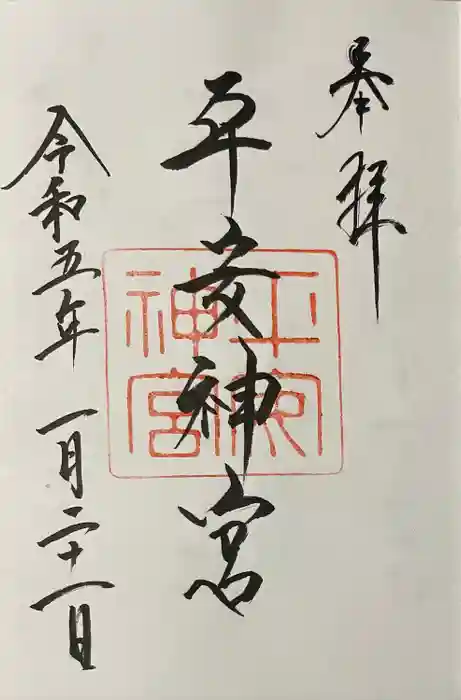 奉拝
平安神宮
平安神宮
令和五年一月二十一日